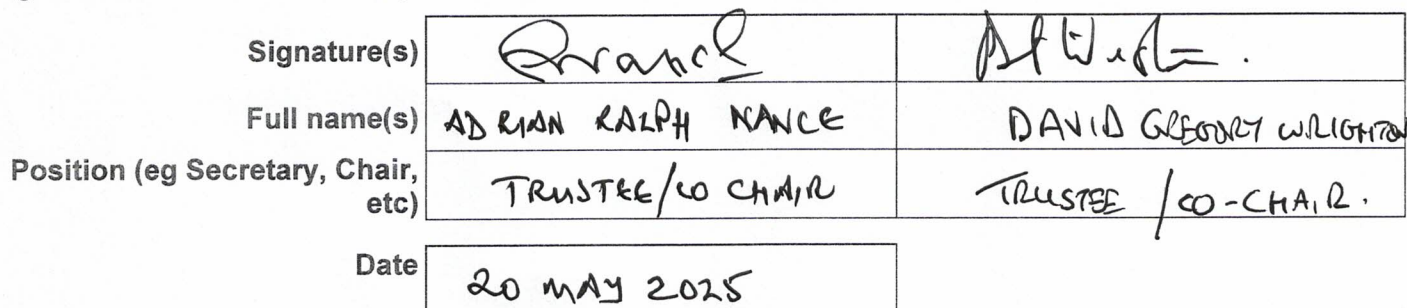 Signature(s)
Full name(s) ADRIAN RALPH NANCE DAVID GREGORY WRIGHTON
Position (eg Secretary, Chair,
etc) TRUSTEE/CO CHAIR TRUSTEE /CO-CHAIR.
Date 20 MAY 2025